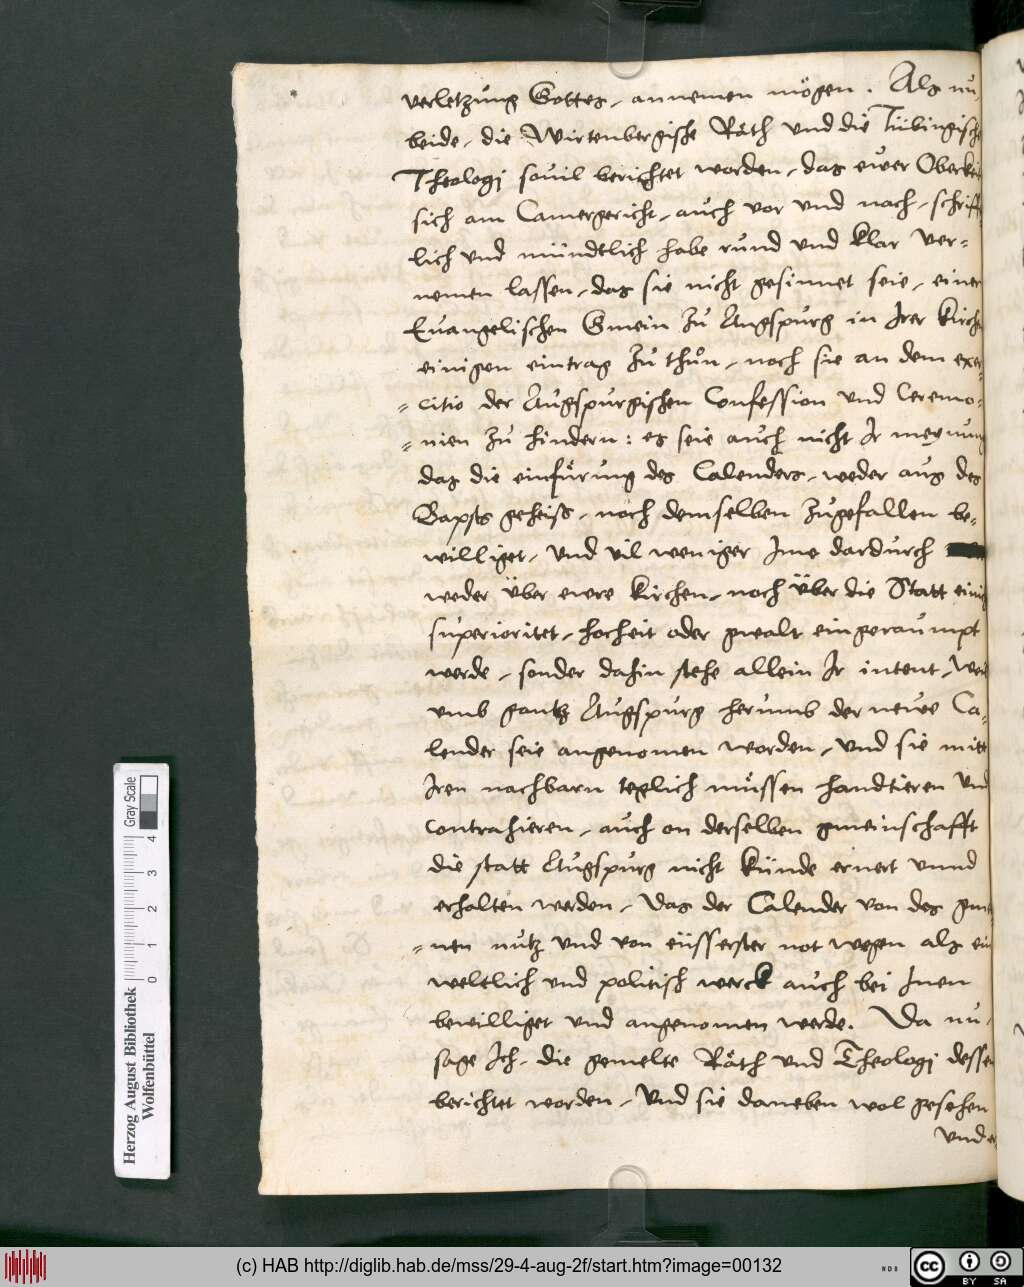 verletzung Gottes, annemen mögen. Als nu,
beide, die Wirtenbergische Räth vnd die Tübingische
Theologj souil berichtet worden, das ewer Oberkeit
sich am Camergericht, auch vor vnd nach, schrifft
lich vnd mündtlich habe rund vnd klar ver=
nemen lassen, das sie nicht gesinnet seie, einer
Euangelischen Gmein zu Augspurg in Irer Kirch
einigen eintrag zu thůn, noch sie an dem exer=
=citio der Augspurgischen Confession vnd Ceremo=
=nien zu hindern: es seie auch nicht Ir meynung
das die einfürung des Calenders, weder aus des
Bapsts geheiss, noch demselben zugefallen be=
williget, vnd vil weniger Ime dardurch
weder über ewre Kirchen, noch über die Statt einig
superioritet, hocheit oder gwalt eingeraumpt
werde, sonder dahin stehe allein Ir intent, Weil
vmb gantz Augspurg herumb der neuwe Ca=
lender seie angenomen worden, Vnd sie mitt
Iren nachbarn teglich müssen handtieren vnd
contrahieren, auch on derselben gmeinschafft
die statt Augspurg nicht künde ernert vnnd
erhalten werden, Das der Calender von des gmei
=nen nutz vnd von eüsserster not wegen als ein
weltlich vnd politisch werck auch bei Inen
bewilliget vnd angenomen werde. Da nu,
sage Ich, die gemelte Räth vnd Theologj dessen
berichtet worden, Vnd sie daneben wol gesehen
vnd
Herzog August Bibliothek
Wolfenbüttel
0 1 2 3 4
Gray Scale
(c) HAB http://diglib.hab.de/mss/29-4-aug-2f/start.htm?image=00132
cc BY SA